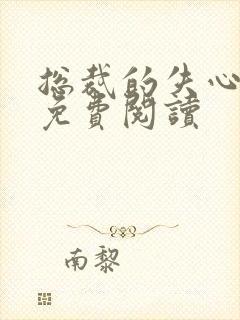 总裁的失心
免費閱讀
南黎